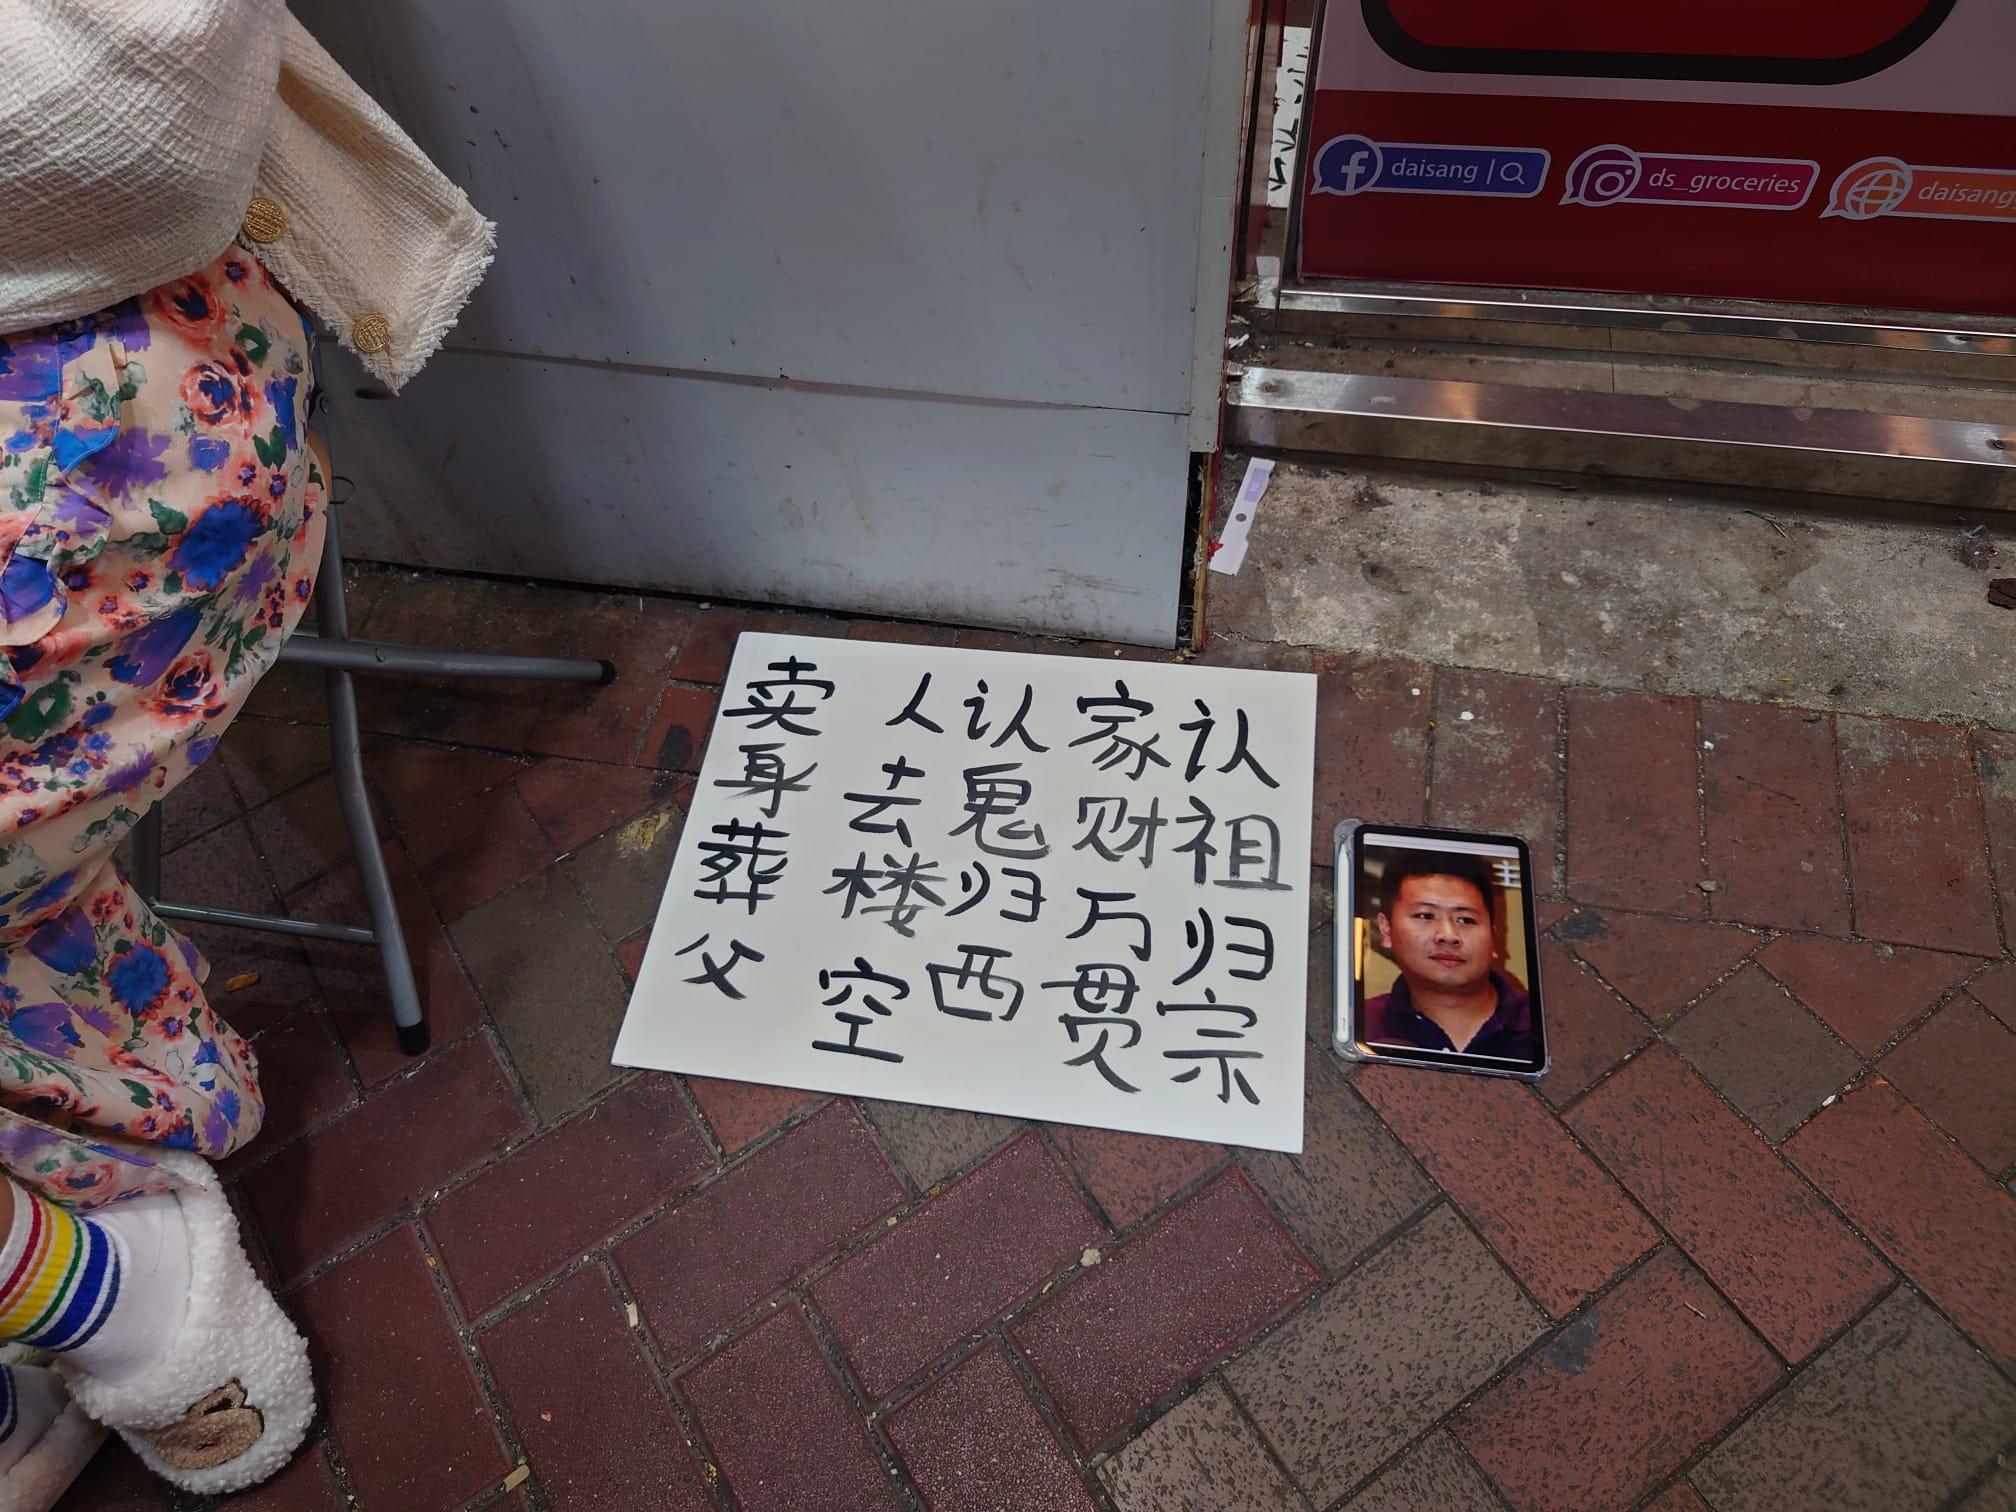 认祖归宗
家财万贯
认鬼归西
人去楼空
卖身葬父
主
daisang
ds_groceries
daisang